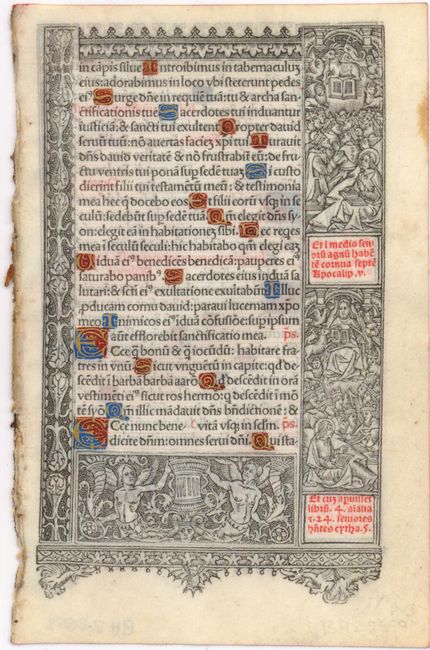 in cãpis silue Introibimus in tabernaculuȝ
eius: adorabimus in loco vbi steterunt pedes
eiꝰ Surge dñe in requiẽ tuã: tu & archa san-
ctificationis tue Sacerdotes tui induantur
iusticiã: & sancti tui exultent Propter dauid
seruũ tuũ: nõ auertas facieȝ xp̃i tui Iurauit
dñs dauid veritatẽ & nõ frustrabit̃ eũ: de fru-
ctu ventris tui ponã sup sedẽ tuaȝ Si custo
dierint filii tui testamẽtũ meũ: & testimonia
mea hec q̃ docebo eos Et filii eorũ vsq; in se
culũ: sedebũt sup sedẽ tuã Qm̃ elegit dñs sy-
on: elegit eã in habitationeȝ sibi Hec reqes
mea ĩ seculũ seculi: hic habitabo qm̃ elegi eaȝ
Viduã eiꝰ benedicẽs benedicã: pauperes eiꝰ
saturabo panibꝰ Sacerdotes eius induã sa
lutari: & scti eiꝰ exultatione exultabũt Illuc
pducam cornu dauid: paraui lucernam xp̃o
meo Inimicos eiꝰ iduã cõfusiõe: sup ipsum
aũt efflorebit sanctificatio mea. ps.
Ecce q̃ bonũ & q̃ iocũdũ: habitare fra
tres in vnũ Sicut vnguẽtũ in capite: qd̃ de-
scẽdit ĩ barbã barbã aarõ Qd̃ descẽdit in orã
vestimẽti eiꝰ sicut ros hermõ: q̃ descẽdit ĩ mõ
tẽ syõ Qm̃ illic mãdauit dñs bñdictionẽ: &
vitã vsq; in sclm̃. ps.
Ecce nunc bene
dicite dñm: omnes serui dñi. Qui sta-
Et ĩ medio sen
iorũ agnũ habẽ
tẽ cornua septẽ
Apocalip. v.
Et cuȝ apuisset
librũ. 4. aĩalia
⁊. 24. seniores
hñtes cytha. 5.